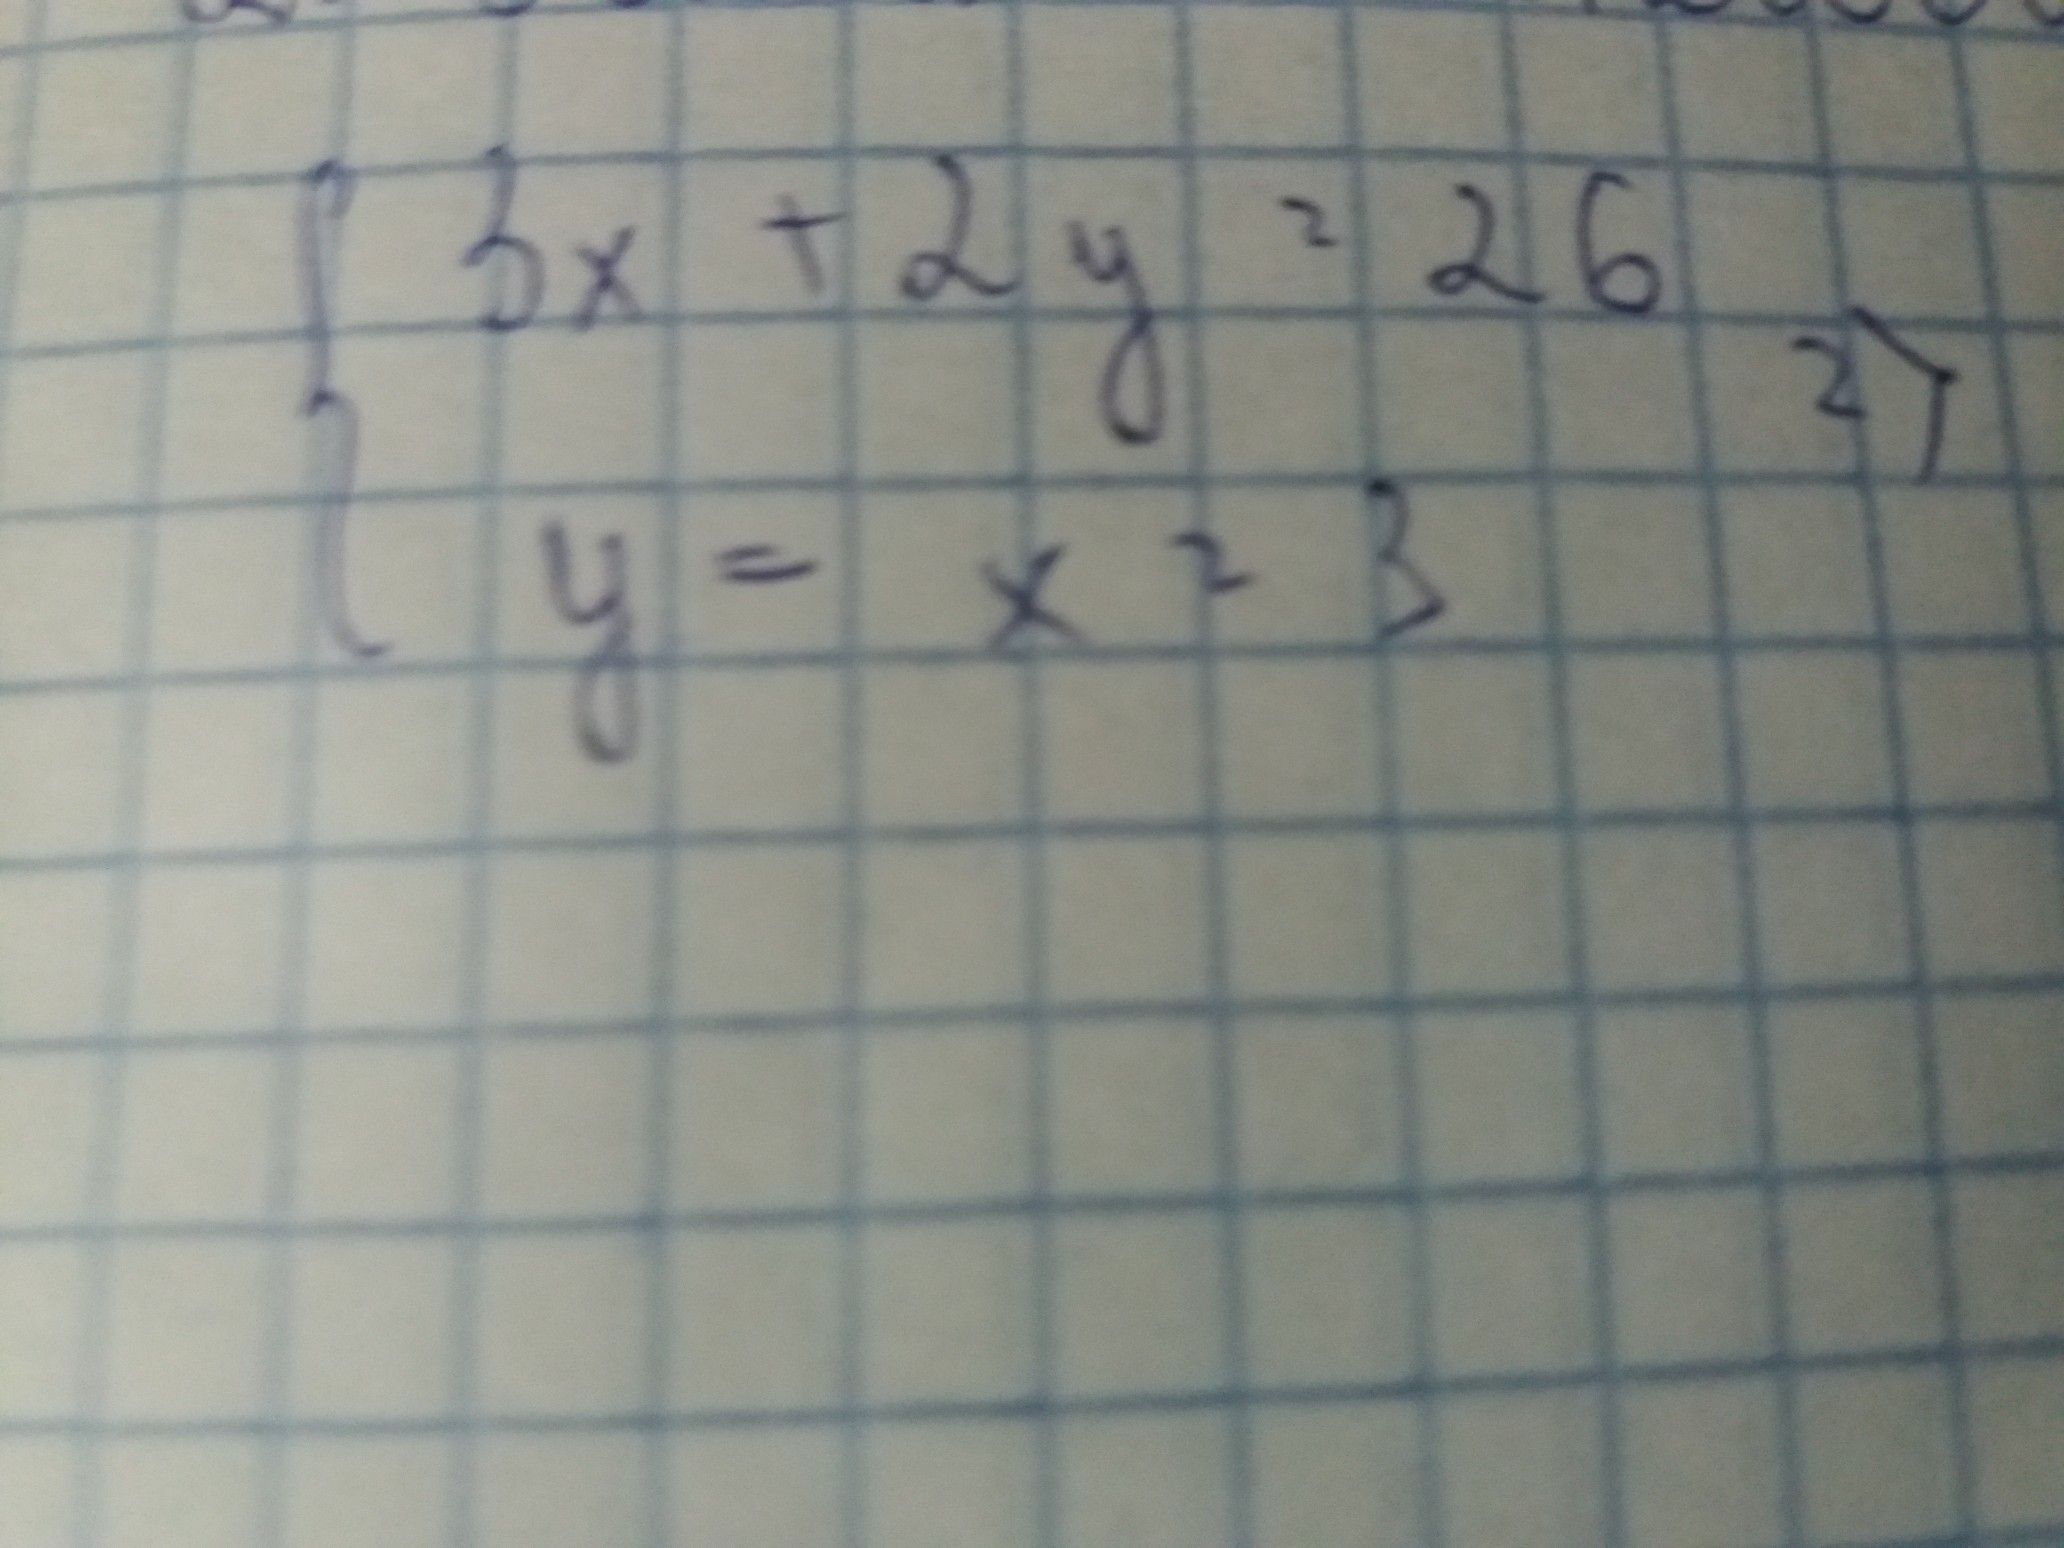 { 3x + 2y = 26
=>
y = x = 3